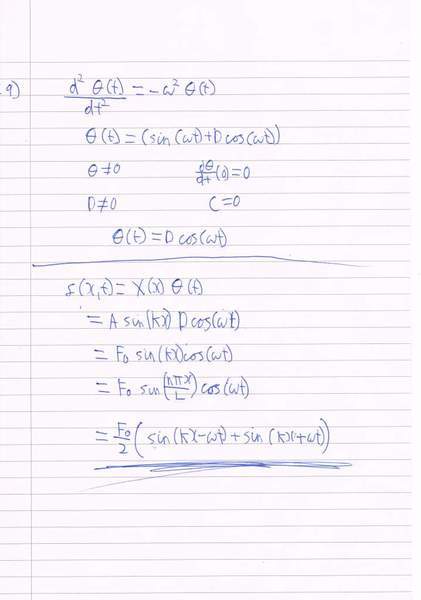 9) d² θ(t)/dt² = -ω² θ(t)
θ(t) = (sin(ωt)+Dcos(ωt))
θ≠0 dθ/dt(0)=0
D≠0 C=0
θ(t) = D cos(ωt)
f(x,t) = X(x) θ(t)
= A sin(kx) D cos(ωt)
= F₀ sin(kx)cos(ωt)
= F₀ sin(nπx/L) cos(ωt)
= F₀/2 (sin(kx-ωt)+sin(kx+ωt))